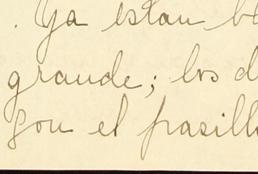 . Ya estan bl
grande; los d
gon el pasill